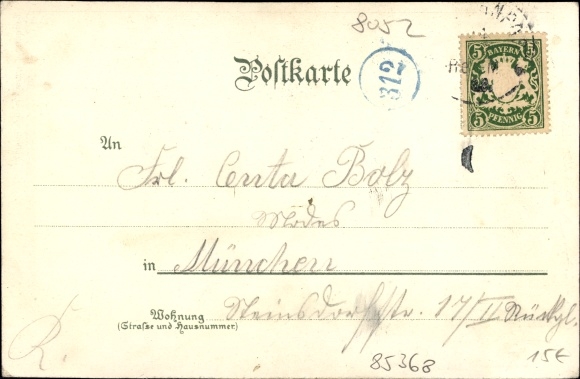 8052
Postkarte
312
5 BAYERN 5
5 PFENNIG 5
An
Frl. Centa Bolz
Modes
in München
Wohnung
(Straße und Hausnummer)
Steinsdorfstr. 17/II Rückgl.
R.
85368
15€